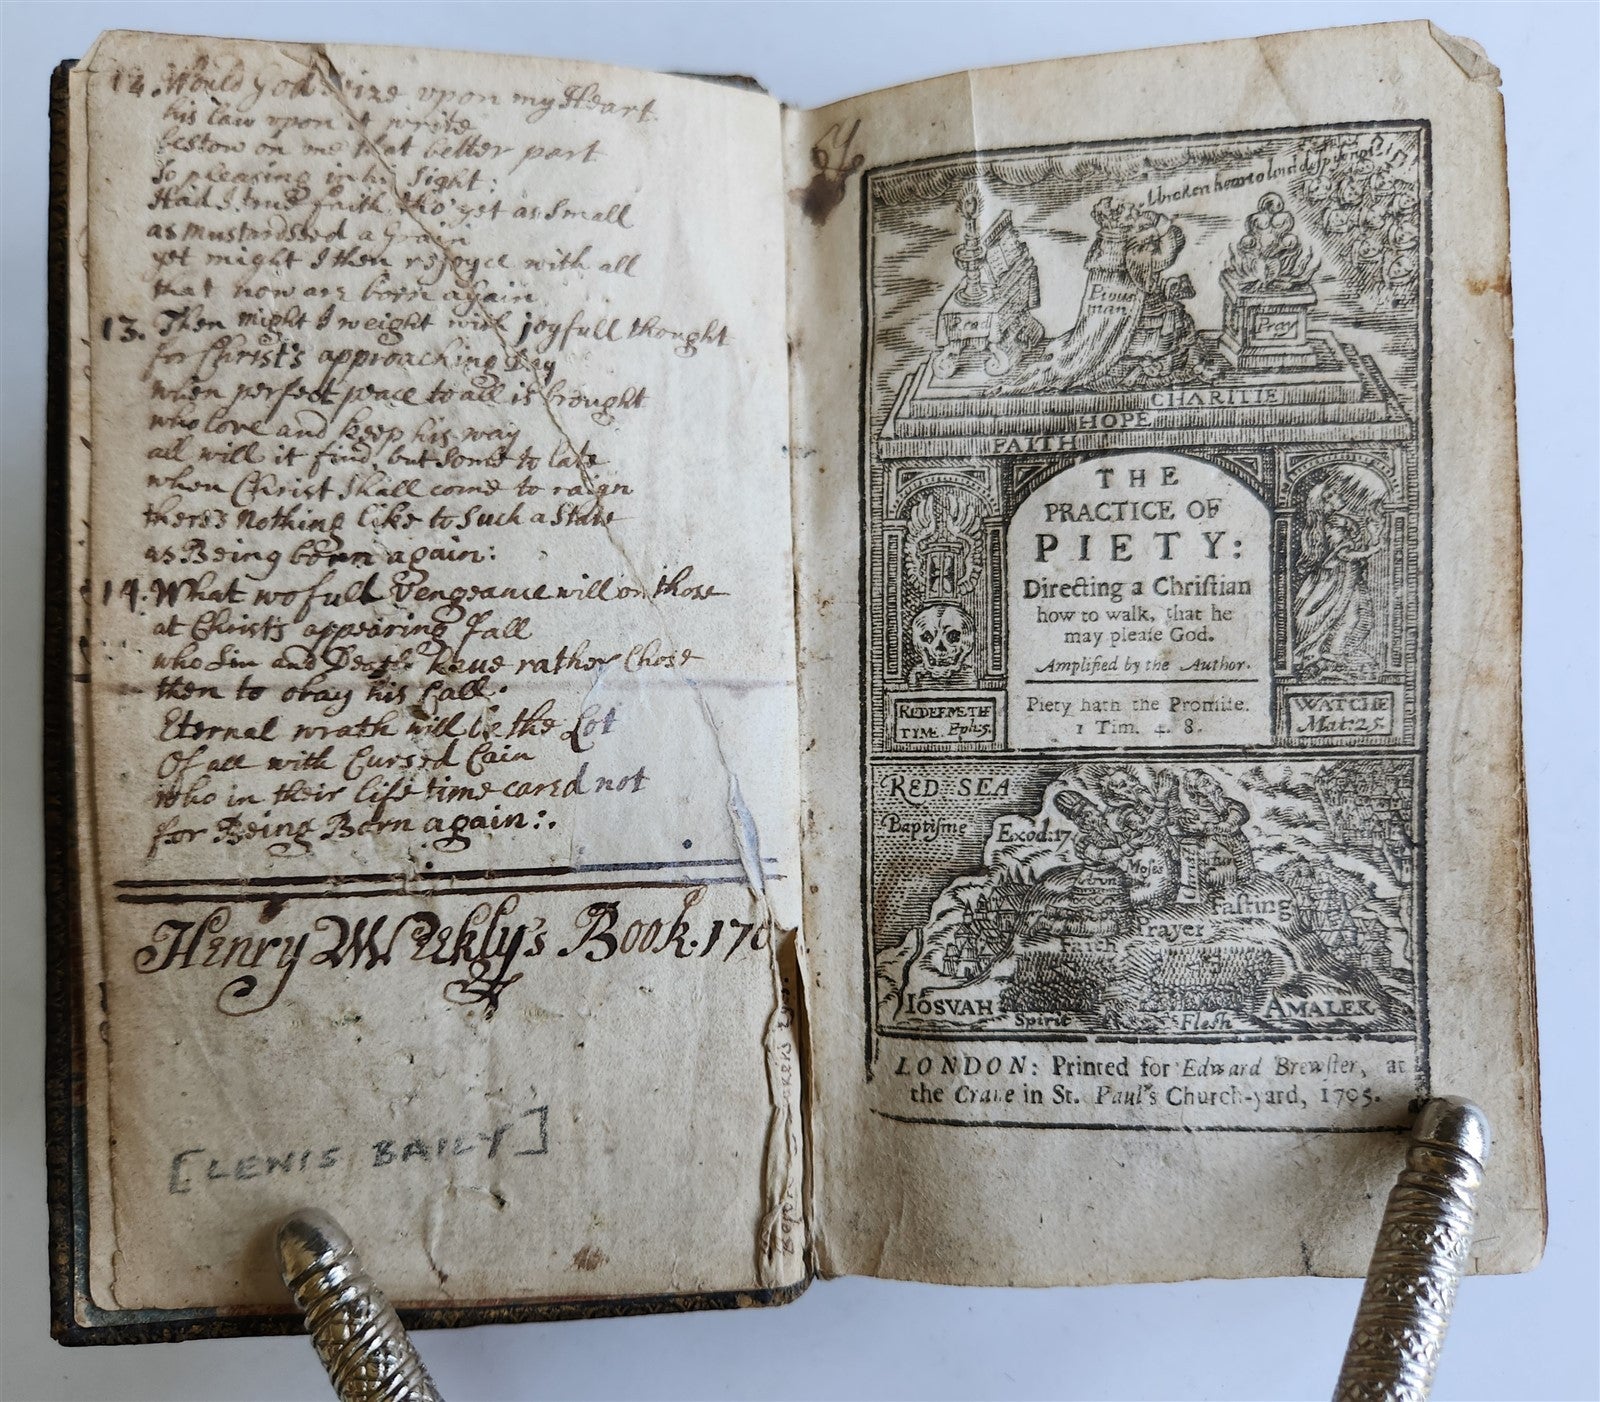 12. Would God seize upon my Heart
his law upon it write
bestow on me that better part
so pleasing in his sight:
Had I true faith tho' yet as small
as mustardseed a Grain
yet might I then rejoyce with all
that now are born again
13. Then might I weight with joyfull thought
for Christ's approaching Day
when perfect peace to all is brought
who love and keep his way
all will it find, but some to late
when Christ shall come to raign
there's nothing like to such a State
as Being born again:
14. What wofull Vengeance will on those
at Christ's appearing fall
who Sin and Death have rather Chose
then to obay his Call.
Eternal wrath will be the Lot
Of all with Cursed Cain
who in their life time cared not
for Being Born again:.
Henry Weekly's Book. 170
[LEWIS BAILY]
broken heart o lord despise not
Pious
man
Read
Pray
CHARITIE
HOPE
FAITH
THE
PRACTICE OF
PIETY:
Directing a Chriſtian
how to walk, that he
may pleaſe God.
Amplified by the Author.
Piety hath the Promiſe.
1 Tim. 4. 8.
REDEEMETH
TYME. Ephs.
WATCHE
Mat:25
RED SEA
Baptiſme
Exod:17
Moses
Fasting
Prayer
Faith
IOSVAH
Spirit
Flesh
AMALEK
LONDON: Printed for Edward Brewſter, at
the Crane in St. Paul's Church-yard, 1705.